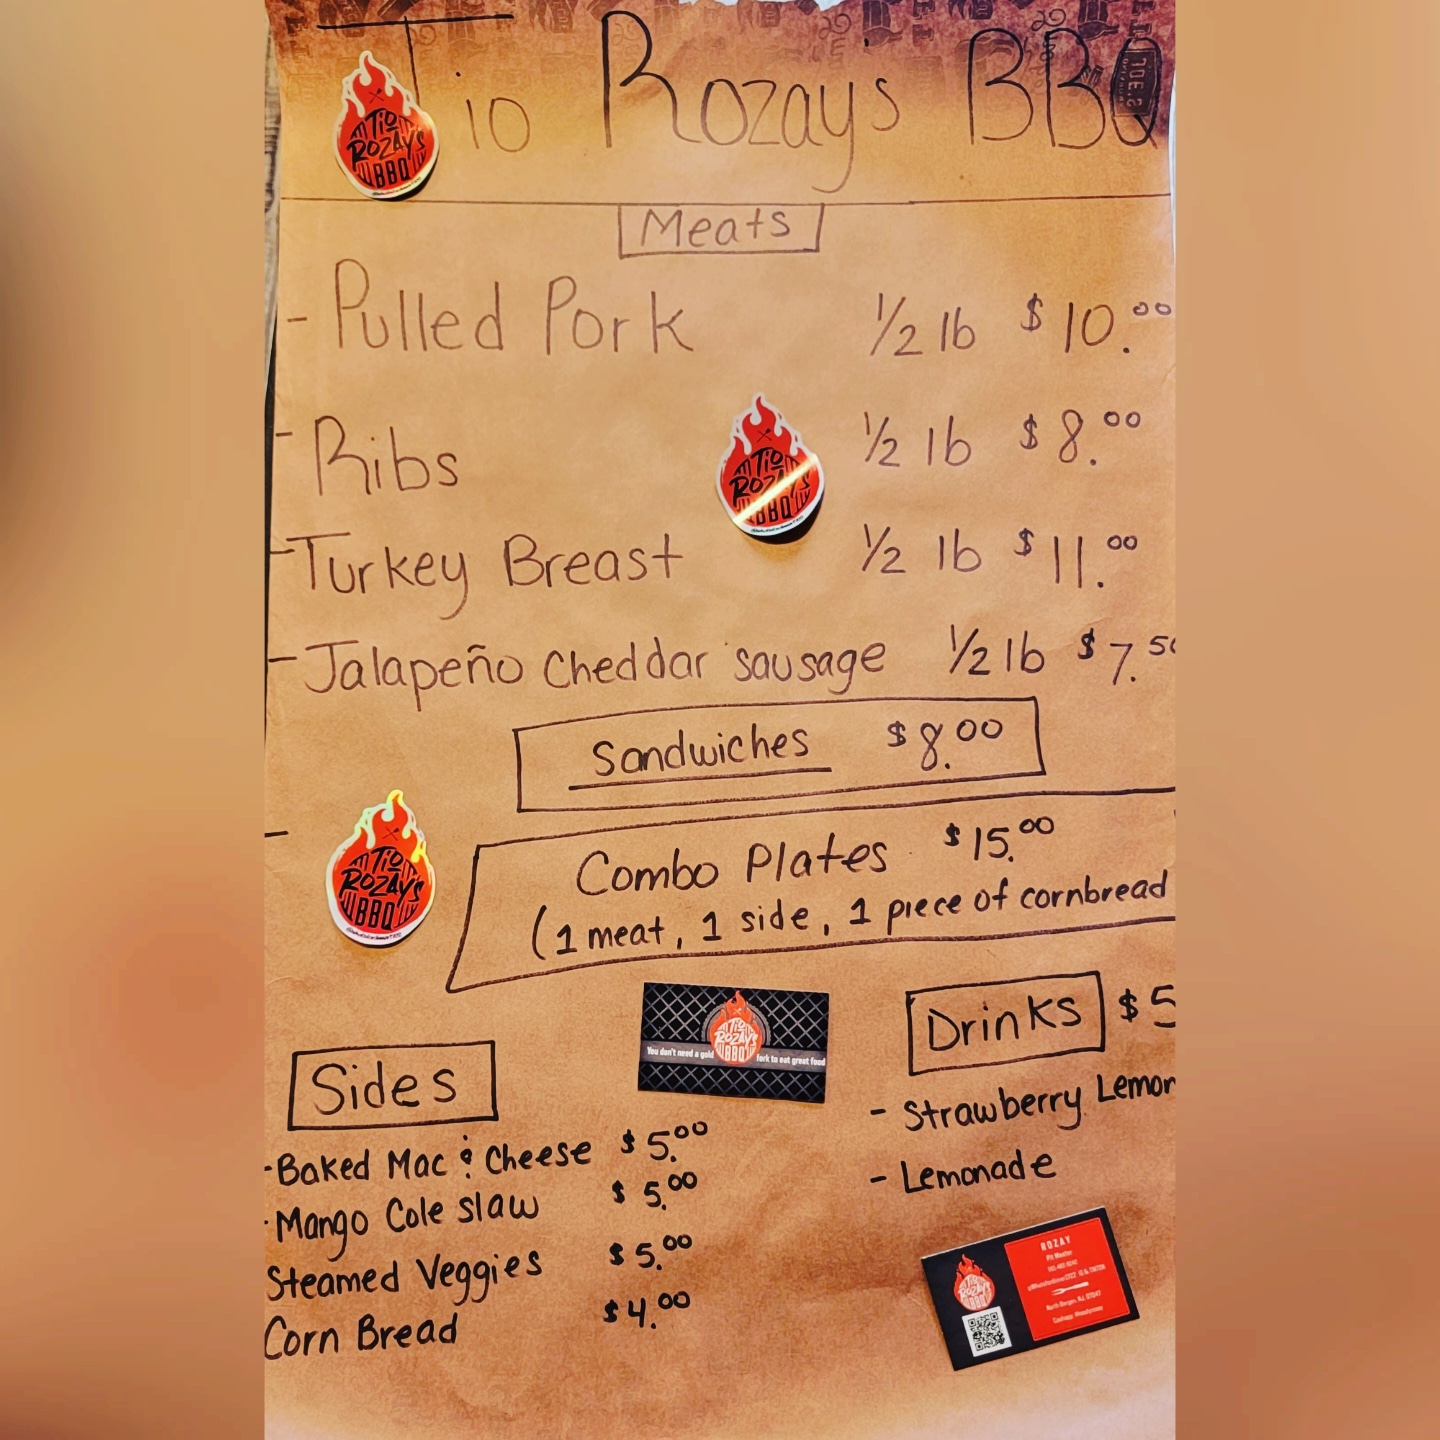 Tio Rozays BBQ
TIO
ROZAYS
BBQ
Meats
- Pulled Pork 1/2 lb $10.00
- Ribs 1/2 lb $8.00
TIO
ROZAYS
BBQ
- Turkey Breast 1/2 lb $11.00
- Jalapeño Cheddar sausage 1/2 lb $7.50
Sandwiches $8.00
Combo Plates $15.00
(1 meat, 1 side, 1 piece of cornbread
TIO
ROZAYS
BBQ
TIO
ROZAYS
BBQ
You don't need a gold fork to eat great food
Drinks $5
- Strawberry Lemon
- Lemonade
Sides
- Baked Mac & Cheese $5.00
- Mango Cole slaw $5.00
Steamed Veggies $5.00
Corn Bread $4.00
TIO
ROZAYS
BBQ
ROZAY
Pit Master
North Bergen, NJ, 07047